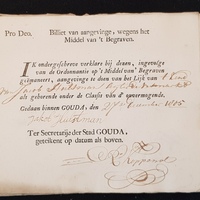 Pro Deo. Billiet van aangevinge, wegens het
Middel van 't Begraven.
IK ondergeschreve verklare bij dezen, ingevolge
van de Ordonnantie op 't Middel van 't Begraven
geëmaneert, aangeving te doen van het Lijk van 't kind
van Jacob
als gehorende onder de Classis van d' onvermogende.
Gedaan binnen GOUDA, den 29 1805
Ter Secretarije der Stad GOUDA,
getekent op datum als boven.